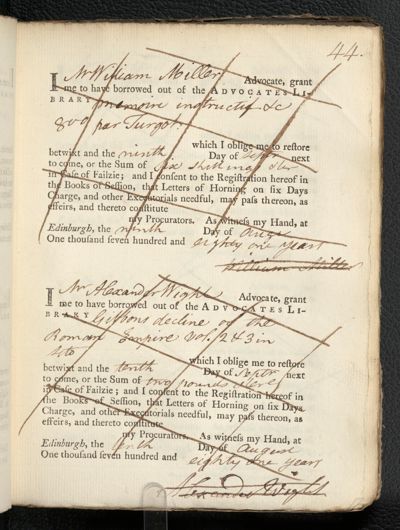 44.
I Mr William Miller Advocate, grant
me to have borrowed out of the ADVOCATES LI-
BRARY memoire instructif &c
8vo par Turgot.
which I oblige me to restore
betwixt and the ninth Day of Septr next
to come, or the Sum of six shillings ster
in Case of Failzie; and I consent to the Registration hereof in
the Books of Session, that Letters of Horning on six Days
Charge, and other Executorials needful, may pass thereon, as
effeirs, and thereto constitute
my Procurators. As witness my Hand, at
Edinburgh, the ninth Day of Augt
One thousand seven hundred and eighty one years
William Miller
I Mr Alexander Wight Advocate, grant
me to have borrowed out of the ADVOCATES LI-
BRARY Gibbons decline of the
Roman Empire vol. 2 & 3 in
4to
which I oblige me to restore
betwixt and the tenth Day of Septr next
to come, or the Sum of two pounds sterl
in Case of Failzie; and I consent to the Registration hereof in
the Books of Session, that Letters of Horning on six Days
Charge, and other Executorials needful, may pass thereon, as
effeirs, and thereto constitute
my Procurators. As witness my Hand, at
Edinburgh, the tenth Day of August
One thousand seven hundred and eighty one years
Alexander Wight